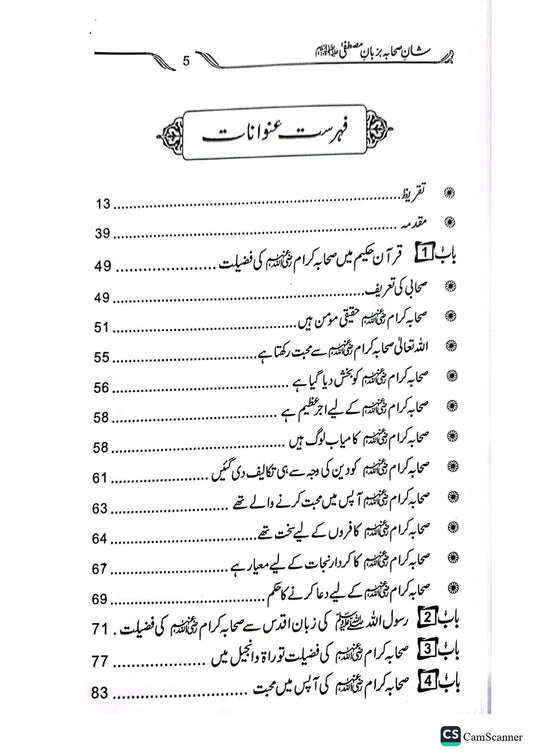 شانِ صحابہ بزبانِ مصطفیٰ ﷺ 5
فہرست عنوانات
تقریظ 13
مقدمہ 39
باب 1 قرآن حکیم میں صحابہ کرام رضی اللہ عنہم کی فضیلت 49
صحابی کی تعریف 49
صحابہ کرام رضی اللہ عنہم حقیقی مومن ہیں 51
اللہ تعالیٰ صحابہ کرام رضی اللہ عنہم سے محبت رکھتا ہے 55
صحابہ کرام رضی اللہ عنہم کو بخش دیا گیا ہے 56
صحابہ کرام رضی اللہ عنہم کے لیے اجر عظیم ہے 58
صحابہ کرام رضی اللہ عنہم کامیاب لوگ ہیں 58
صحابہ کرام رضی اللہ عنہم کو دین کی وجہ سے ہی تکالیف دی گئیں 61
صحابہ کرام رضی اللہ عنہم آپس میں محبت کرنے والے تھے 63
صحابہ کرام رضی اللہ عنہم کافروں کے لیے سخت تھے 64
صحابہ کرام رضی اللہ عنہم کا کردار نجات کے لیے معیار ہے 67
صحابہ کرام رضی اللہ عنہم کے لیے دعا کرنے کا حکم 69
باب 2 رسول اللہ ﷺ کی زبان اقدس سے صحابہ کرام رضی اللہ عنہم کی فضیلت 71
باب 3 صحابہ کرام رضی اللہ عنہم کی فضیلت توراۃ وانجیل میں 77
باب 4 صحابہ کرام رضی اللہ عنہم کی آپس میں محبت 83
CS CamScanner